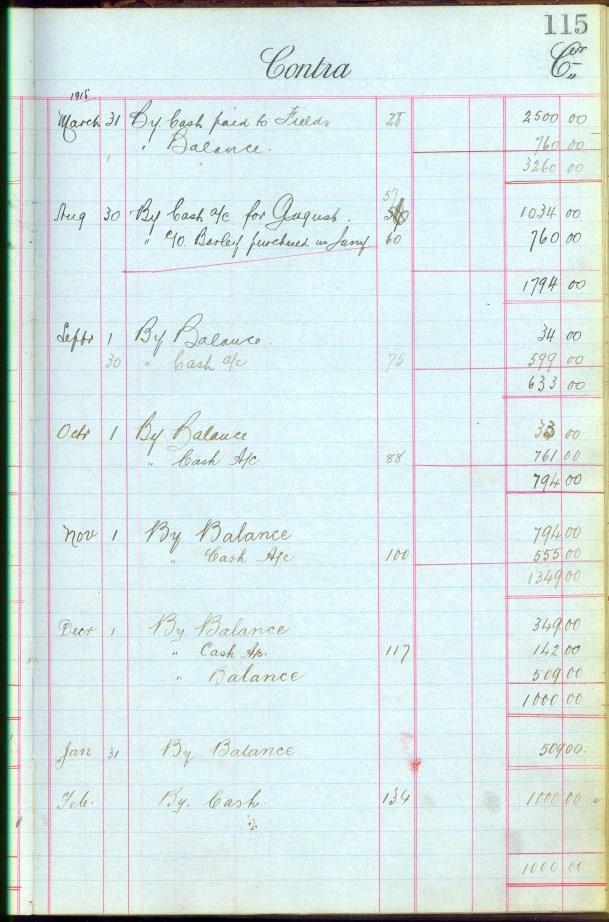 115
Contra Cr
1915
March 31 By Cash paid to Fields 28 2500 00
" Balance. 760 00
3260 00
57
Aug 30 By Cash a/c for August. 1034 00
" c/o. Barley purchased in Jany 60 760 00
1794 00
Septr 1 By Balance. 34 00
30 " Cash a/c 75 599 00
633 00
Octr 1 By Balance 33 00
" Cash A/c 88 761 00
794 00
Nov 1 By Balance 794 00
" Cash A/c 100 555 00
1349 00
Decr 1 By Balance 349 00
" Cash A/c. 117 142 00
" Balance 509 00
1000 00
Jan 31 By Balance 509 00.
Feb. By. Cash. 134 1000 00
1000 00